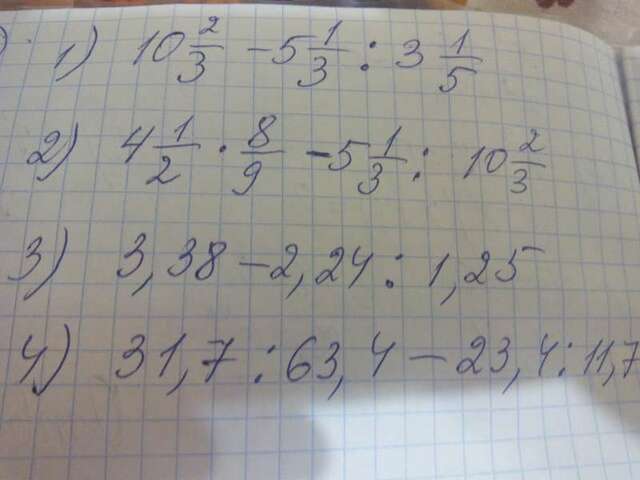 1) 10 2/3 - 5 1/3 : 3 1/5
2) 4 1/2 · 8/9 - 5 1/3 : 10 2/3
3) 3,38 - 2,24 : 1,25
4) 31,7 : 63,4 - 23,4 : 11,7